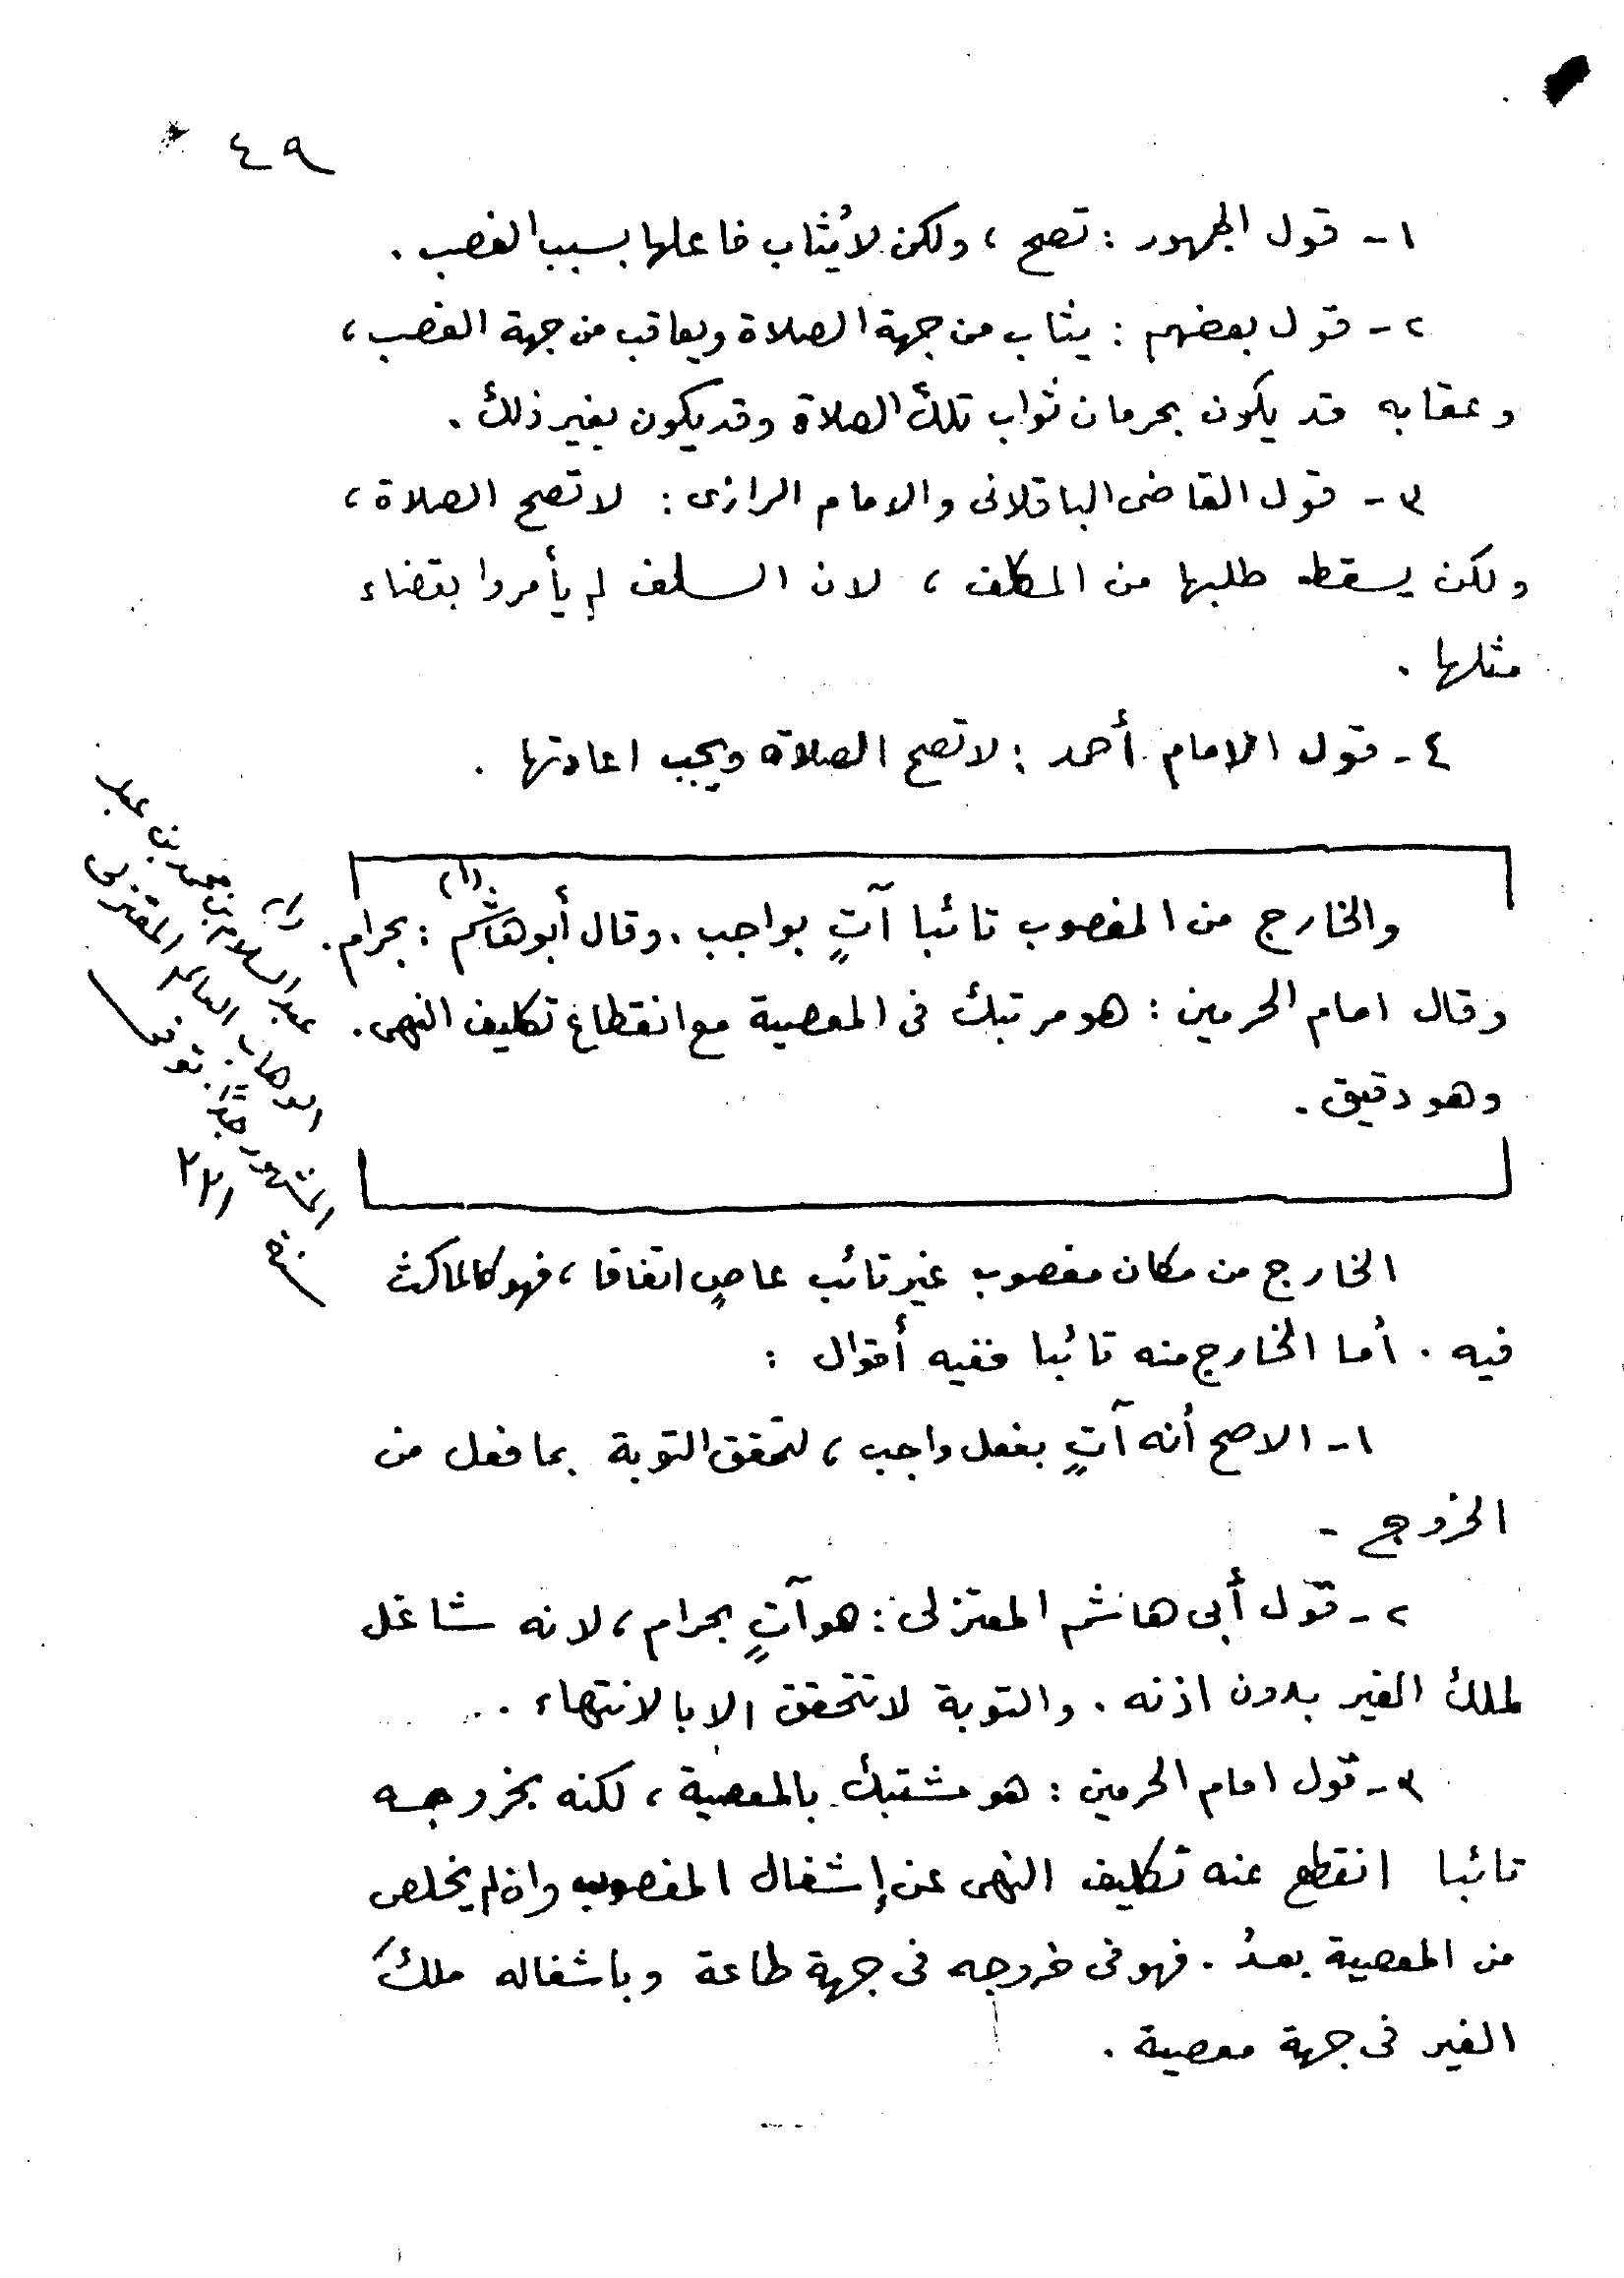 ٤٩
١- قول الجمهور : تصح ، ولكن لا يُثاب فاعلها بسبب الغصب .
٢- قول بعضهم : يثاب من جهة الصلاة ويعاقب من جهة الغصب ،
وعقابه قد يكون بحرمان ثواب تلك الصلاة وقد يكون بغير ذلك .
٣- قول القاضى الباقلانى والامام الرازى : لا تصح الصلاة ،
ولكن يسقط طلبها من المكلف ، لان السلف لم يأمروا بقضاء
مثلها .
٤- قول الإمام أحمد : لا تصح الصلاة ويجب اعادتها .
والخارج من المغصوب تائبا آتٍ بواجب . وقال أبوهاشم (١) : بحرام .
وقال امام الحرمين : هو مرتبك فى المعصية مع انقطاع تكليف النهى .
وهو دقيق .
(١) عبد السلام بن محمد بن عبد
الوهاب العالم المعتزلى
المشهور جدًا. توفى
سنة ٢٢١
الخارج من مكان مغصوب غير تائب عاصٍ اتفاقا ، فهو كالماكث
فيه . أما الخارج منه تائبا ففيه أقوال :
١- الاصح أنه آتٍ بفعل واجب ، لتحقق التوبة بما فعل من
الخروج -
٢- قول أبى هاشم المعتزلى : هو آتٍ بحرام ، لانه شاغل
لملك الغير بدون اذنه . والتوبة لا تتحقق الا بالانتهاء .
٣- قول امام الحرمين : هو مشتبك بالمعصية ، لكنه بخروجه
تائبا انقطع عنه تكليف النهى عن إشغال المغصوب وان لم يخلص
من المعصية بعدُ . فهو فى خروجه فى جهة طاعة وباشغاله ملكَ
الغير فى جهة معصية .